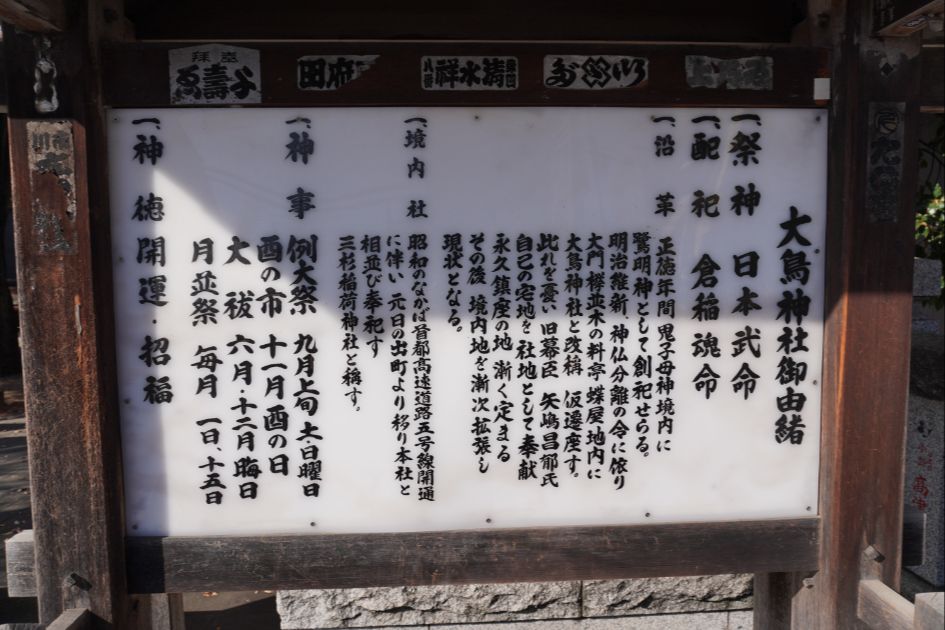 大鳥神社御由緒
一、祭神 日本武命
一、配祀 倉稲魂命
一、沿革 正徳年間 鬼子母神境内に
鷺明神として創祀せらる。
明治維新、神仏分離の令に依り
大門欅並木の料亭 蝶屋地内に
大鳥神社と改稱 仮遷座す。
此れを憂い 旧幕臣 矢嶋昌郁氏
自己の宅地を社地として奉献
永久鎮座の地 漸く定まる
その後 境内地を漸次拡張し
現状となる。
一、境内社 昭和のなかば首都高速道路五号線開通
に伴い 元日の出町より移り本社と
相並び奉祀す
三杉稲荷神社と稱す。
一、神事 例大祭 九月上旬 土日曜日
酉の市 十一月酉の日
大祓 六月・十二月晦日
月並祭 毎月 一日、十五日
一、神徳 開運・招福
清水祥
田府
萬壽